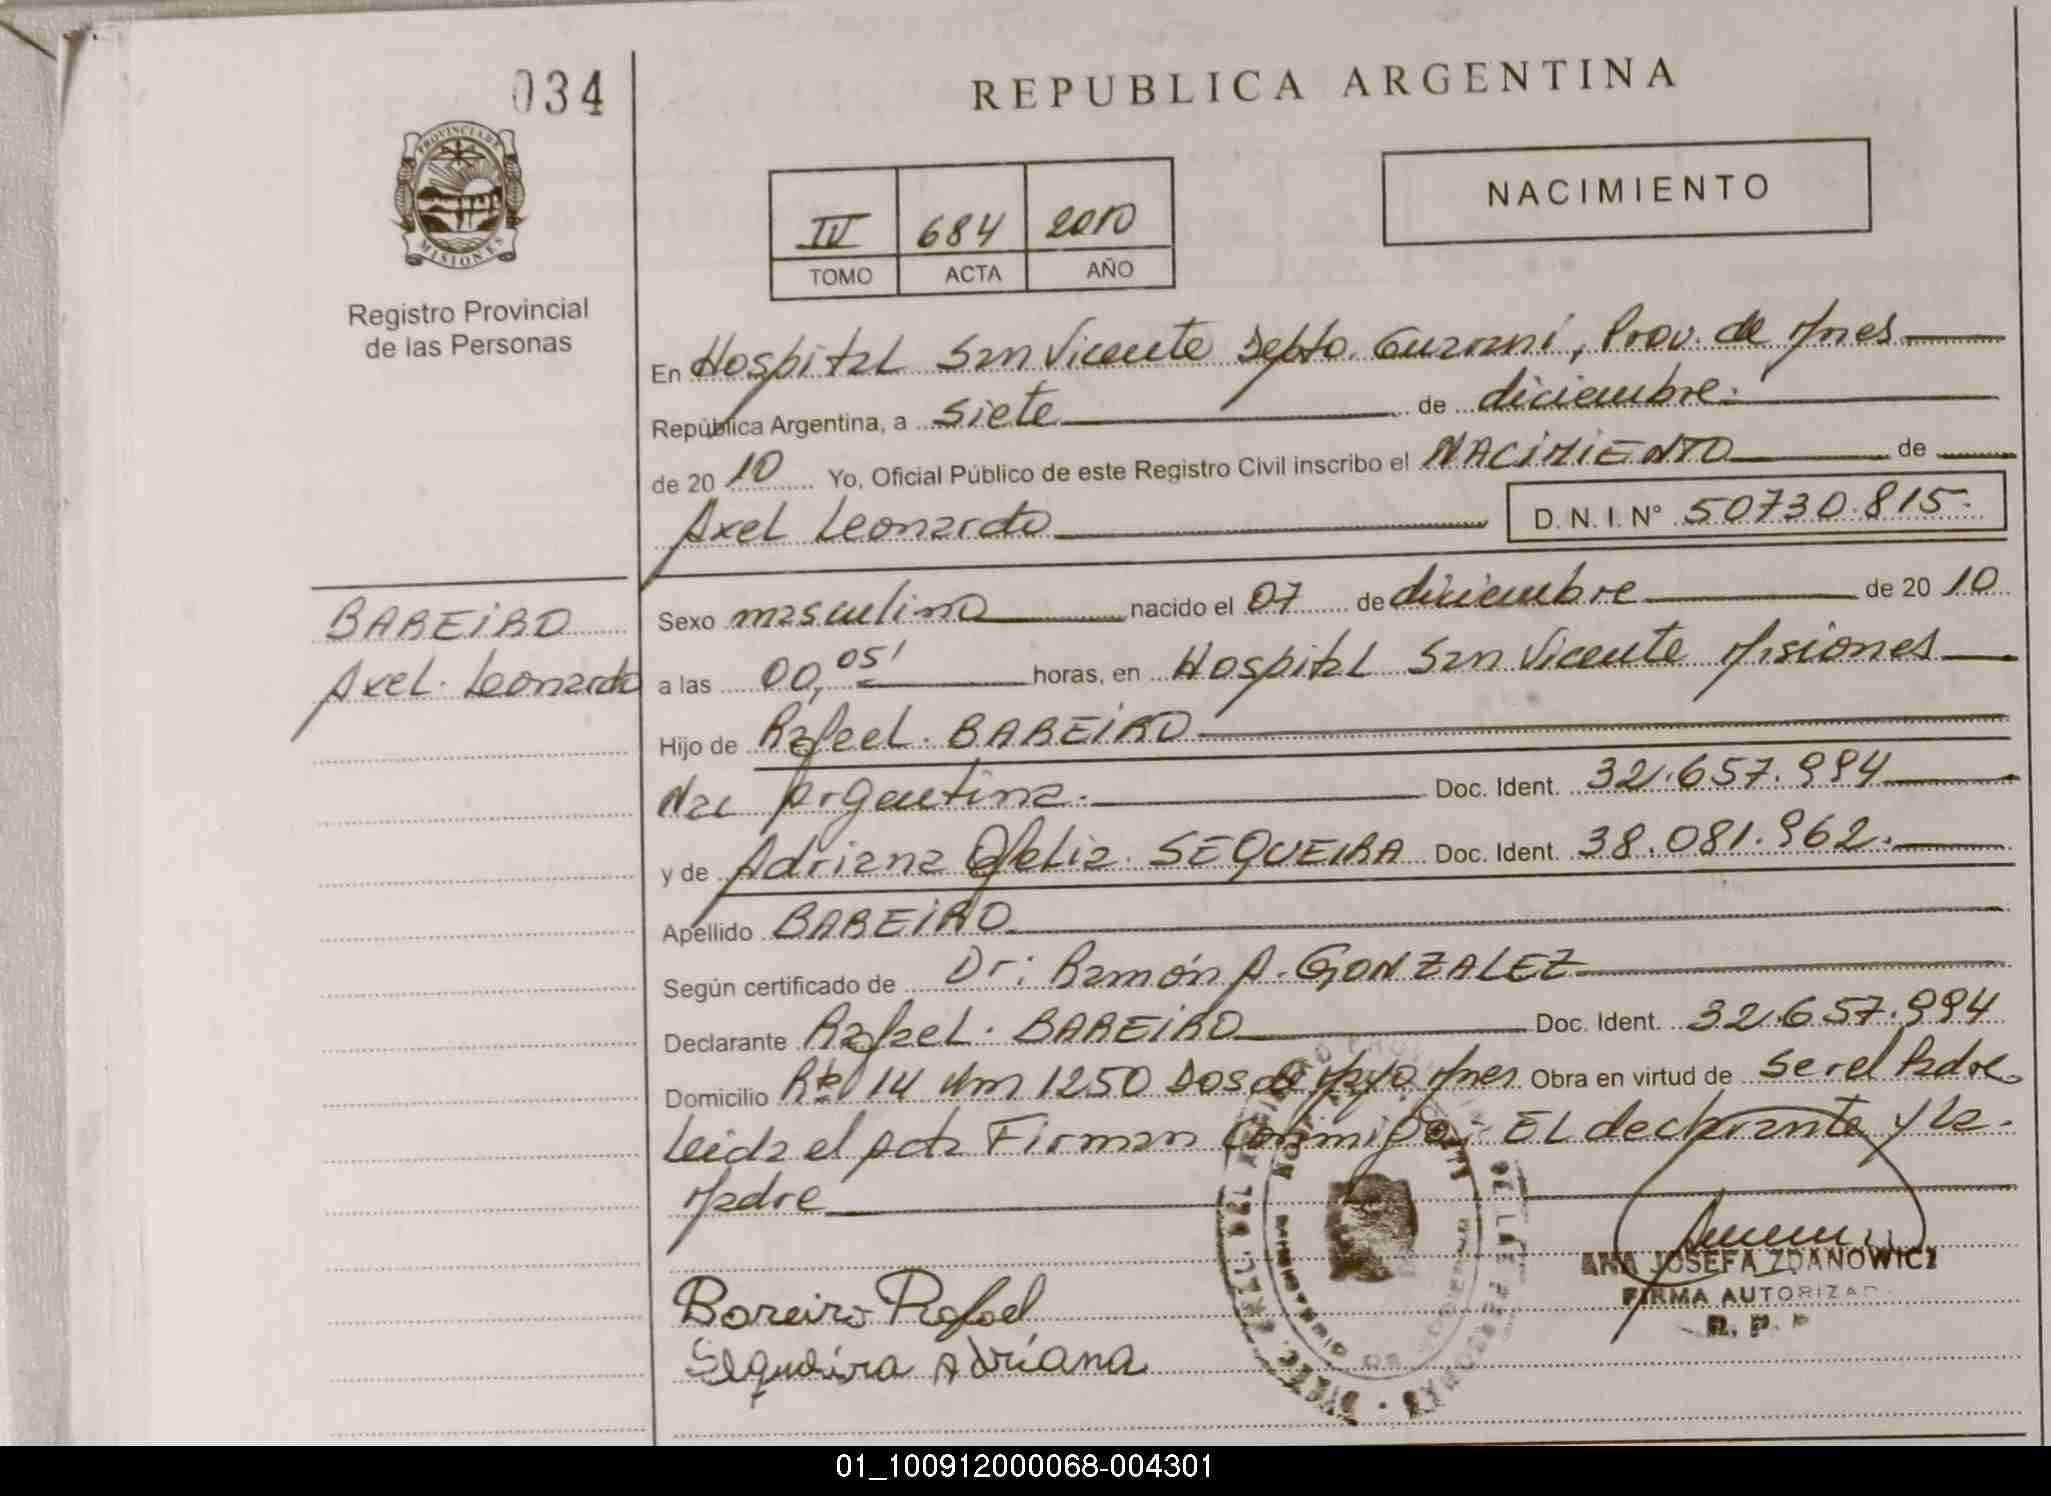 034
REPUBLICA ARGENTINA
PROVINCIA DE
MISIONES
Registro Provincial
de las Personas
IV 684 2010
TOMO ACTA AÑO
NACIMIENTO
En Hospital San Vicente Depto. Guarani, Prov. de Mnes
República Argentina, a siete de diciembre.
de 20 10 Yo, Oficial Público de este Registro Civil inscribo el NACIMIENTO de
Axel Leonardo D. N. I. N° 50730.815.
BAREIRO
Axel. Leonardo
Sexo masculino nacido el 07 de diciembre de 20 10
a las 00,05' horas, en Hospital San Vicente Misiones
Hijo de Rafael. BAREIRO
Nac Argentina. Doc. Ident. 32.657.994
y de Adriana Ofelia. SEQUEIRA Doc. Ident. 38.081.962.
Apellido BAREIRO
Según certificado de Dr: Ramón A. GONZALEZ
Declarante Rafael. BAREIRO Doc. Ident. 32.657.994
Domicilio Rta 14 Km 1250 Dos de Mayo Mnes Obra en virtud de ser el Padre
Leida el Acta Firman conmigo: EL declarante y la
Madre
ANA JOSEFA ZDANOWICZ
FIRMA AUTORIZAD
R. P. P
Bareiro Rafael
Sequeira Adriana
01_100912000068-004301